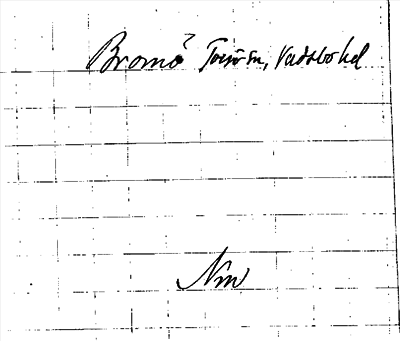 Bromö Torsö sn, Vadsbo hd
Nm